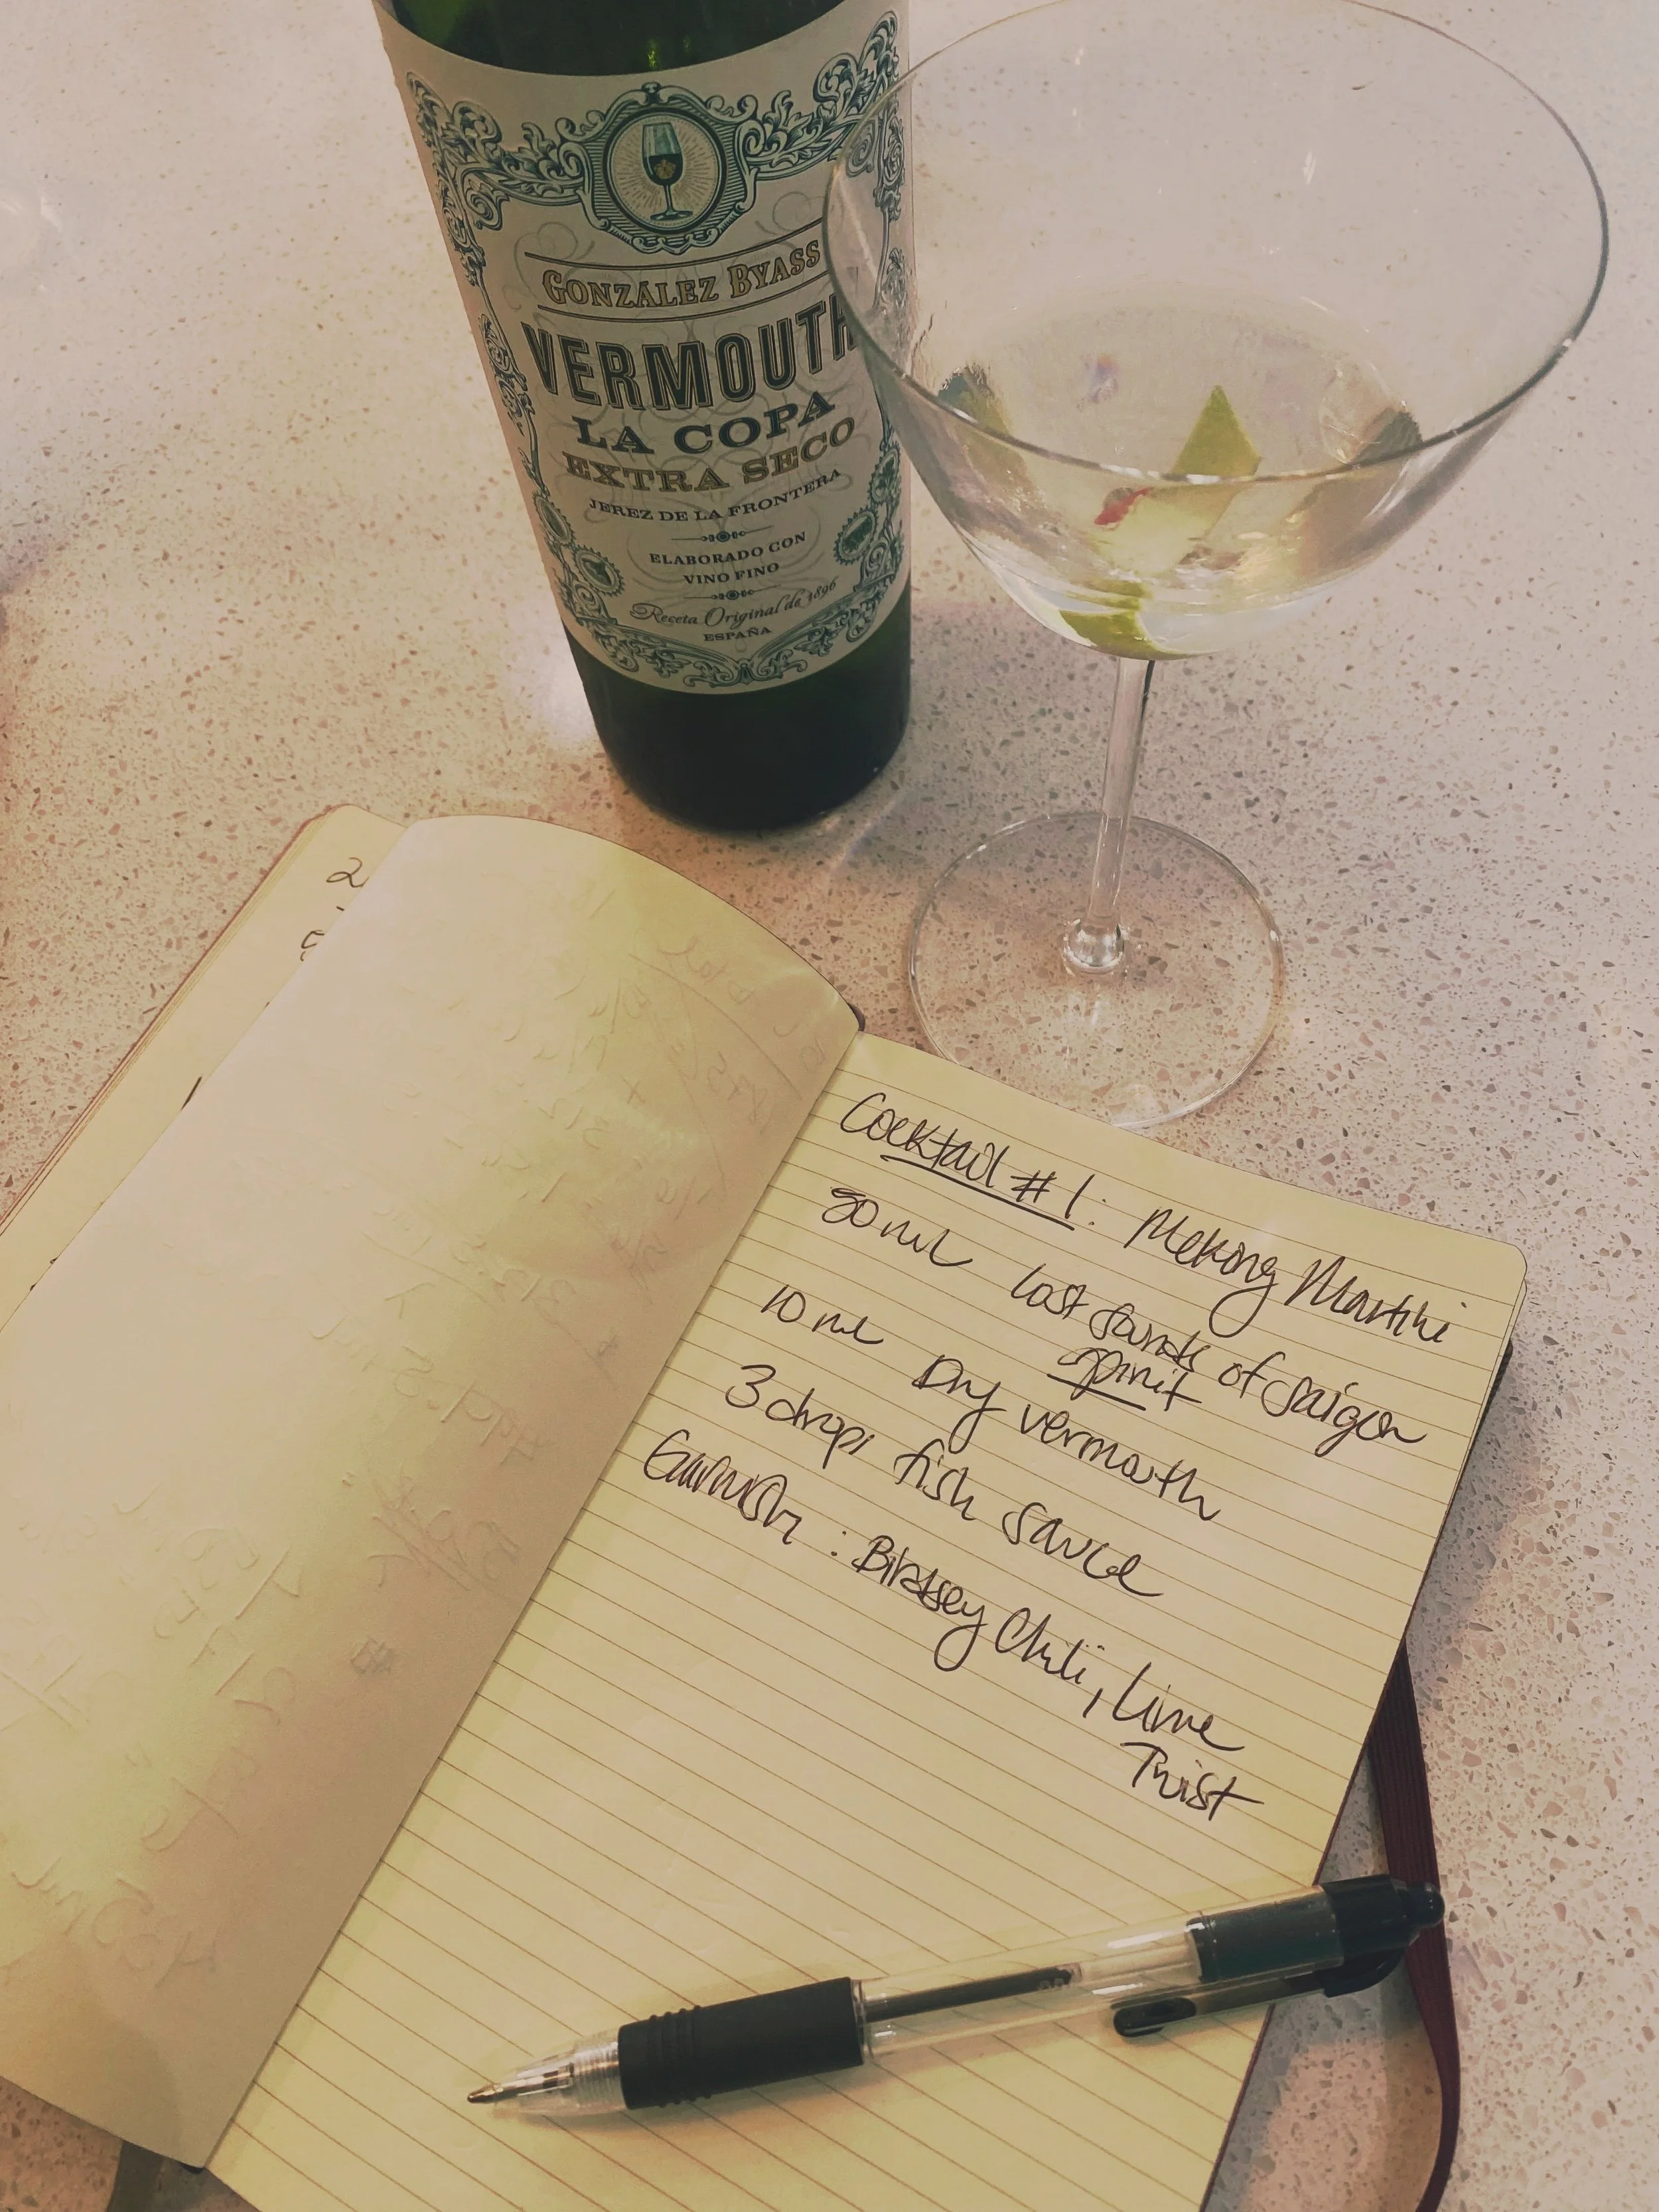 GONZÁLEZ BYASS
VERMOUTH
LA COPA
EXTRA SECO
JEREZ DE LA FRONTERA
ELABORADO CON
VINO FINO
Receta Original de 1896
ESPAÑA
2
Cocktail #1: Mekong Martini
ml Lost of Saigon
spirit
10 ml Dry vermouth
3 drops fish sauce
Garnish: Chili, Lime
Twist